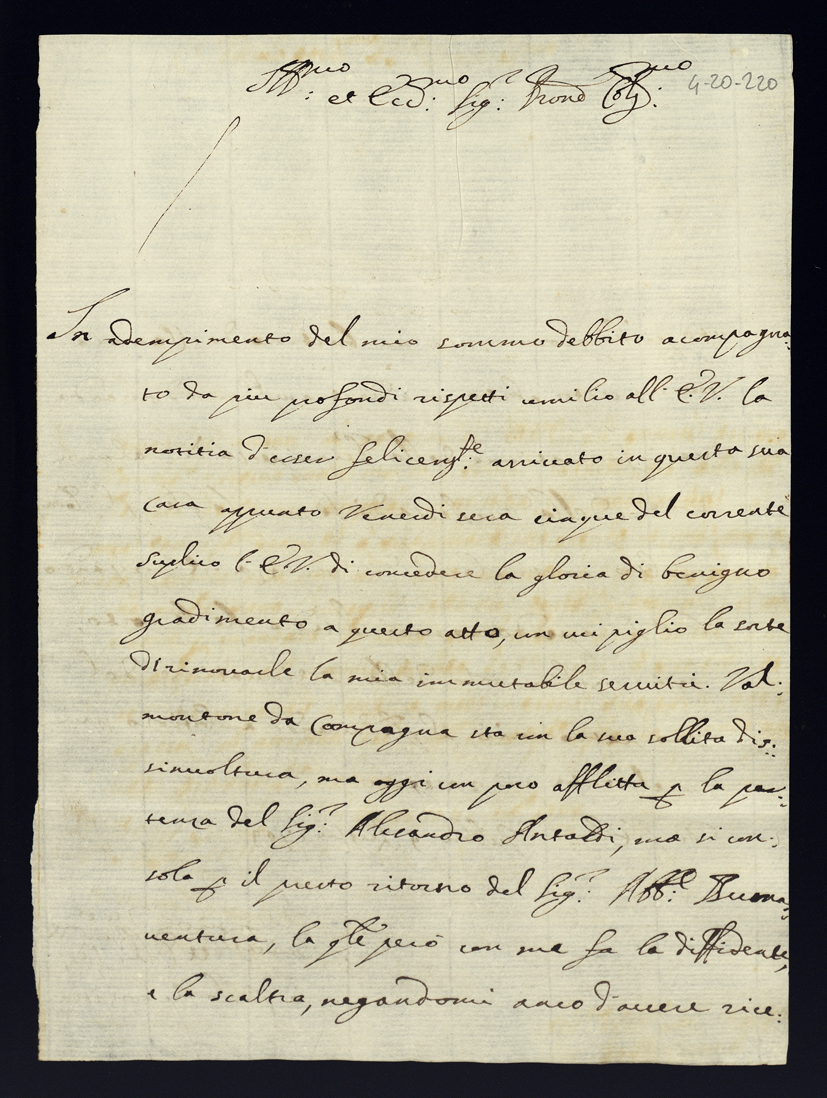 Ill:mo et Ecc:mo Sig:r Pron Col:mo
4-20-220
In adempimento del mio sommo debbito acompagna:
to da piu profondi rispetti umilio all' E. V. la
notitia d'esser felicem:te arrivato in questa sua
casa appunto Venerdi sera cinque del corrente
suplico l' E. V. di concedere la gloria di benigno
gradimento a questo atto, con cui piglio la sorte
di rinovarle la mia immutabile servitù. Val:
montone da Compagna sta con la sua sollita dis:
sinvoltura, ma oggi un poco afflitta p la par:
tenza del Sig:r Alesandro Antaldi, ma si con:
sola p il presto ritorno del Sig:r Abb:e Buona:
ventura, la qle però con me fa la diffidente,
e la scaltra, negandomi anco d'avere rice: